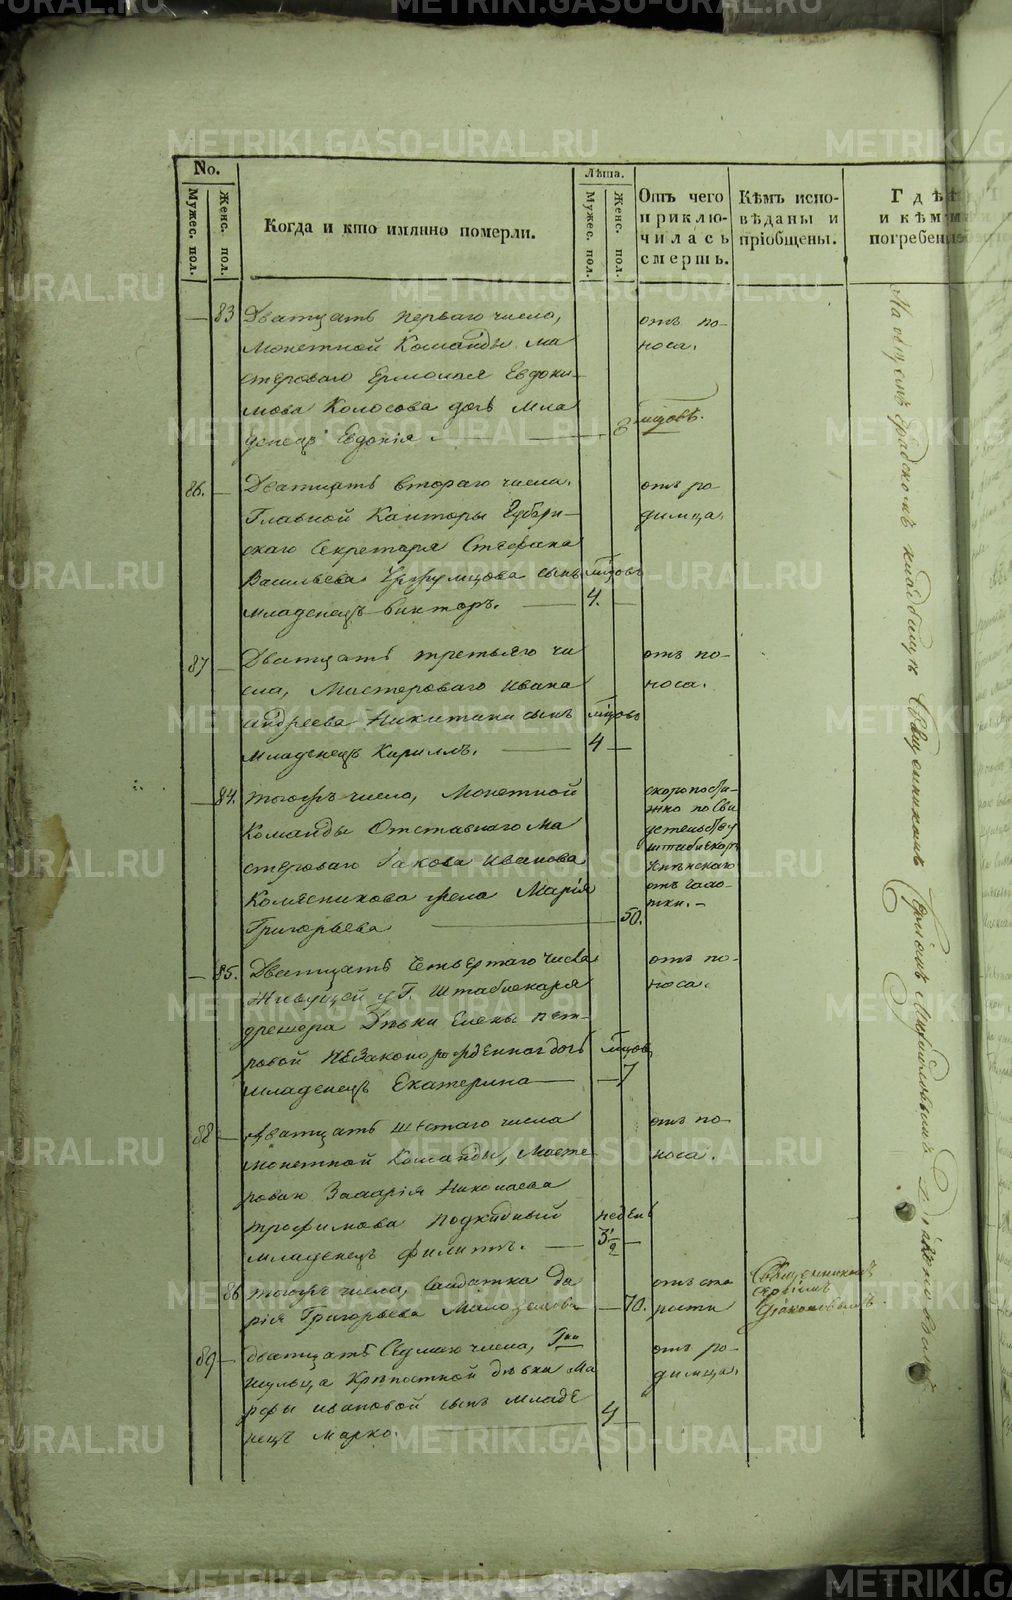 No.
Мужес. пол.
Женс. пол.
Когда и кто имянно померли.
Лѣта.
Мужес. пол.
Женс. пол.
Отъ чего
приклю-
чилась
смерть.
Кѣмъ испо-
вѣданы и
пріобщены.
Гдѣ
и кѣмъ
погребены
83 Дватцать перваго числа,
Монетной Команды ма
стероваго Ермолая Евдоки-
мова Колосова дочь мла
денецъ Евдокія.
8 мцовъ.
отъ по-
носа.
86. Дватцать втораго числа.
Главной Канторы Губерн-
скаго Секретаря Стефана
Васильева сынъ
младенецъ Викторъ.
мцовъ
4.
отъ ро-
димца.
87 Дватцать третьяго чи
сла, Мастероваго Ивана
Андреева Никитина сынъ
младенецъ Кириллъ.
мцовъ
4
отъ по-
носа.
84. тогожъ число, Монетной
Команды Отставнаго ма
стероваго Іакова Иванова
Колясникова жена Марія
Григорьева
50.
скоропости-
жно по сви
детельству
штаблекаря
отъ чахо-
тки.
85. Дватцать четвертаго числа
Живущей у Г. Штаблекаря
дрешера Дѣвки Елены Пет-
ровой незаконорожденная дочь
младенецъ Екатерина
мцовъ
7
отъ по-
носа.
88 Дватцать шестаго числа
монетной Команды, Масте
роваго Захарія Николаева
Трофимова подкидный
младенецъ Филиппъ.
недель
3 1/2
отъ по-
носа.
86 тогожъ числа, Солдатка Да
рія Григорьева Малоземова
70.
отъ ста
рости
Священникомъ
89 Дватцать седмаго числа,
Крѣпостной дѣвки Ма
рфы Ивановой сынъ младе
нецъ Марко.
4
отъ ро-
димца.
На градскомъ кладбищѣ Священникомъ
METRIKI.GASO-URAL.RU